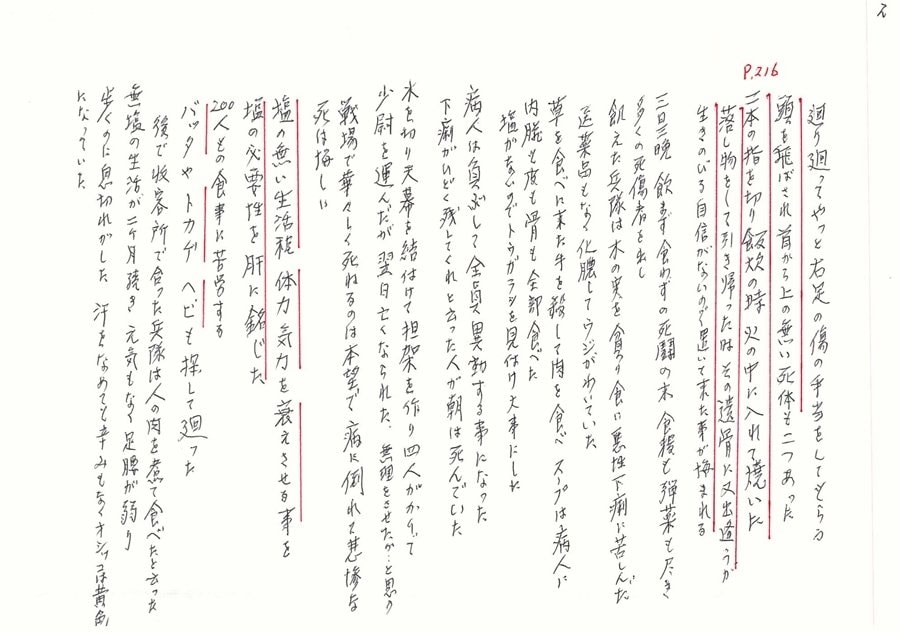 ス
P.216
廻り廻ってやっと右足の傷の手当をしてもらう
頭を飛ばされ首から上の無い死体も二つあった
二本の指を切り飯炊の時 火の中に入れて焼いた
落し物をして引き帰った時その遺骨に又出逢うが
生きのびる自信がないので置いて来た事が悔まれる
三日三晩 飲まず食わずの死闘の末 食糧も弾薬も尽き
多くの死傷者を出し
飢えた兵隊は木の実を貪り食い悪性下痢に苦しんだ
医薬品もなく化膿してウジがわいていた
草を食べに来た牛を殺して肉を食べ スープは病人に
内臓も皮も骨も全部食べた
塩がないのでトウガラシを見付け大事にした
病人は負ぶして全員異動する事になった
下痢がひどく残してくれと云った人が朝は死んでいた
木を切り天幕を結付けて担架を作り四人がかりで
少尉を運んだが翌日亡くなられた 無理をさせたか…と思う
戦場で華々しく死ねるのは本望で 病に倒れて悲惨な
死は悔しい
塩の無い生活程 体力気力を衰えさせる事を
塩の必要性を肝に銘じた
200人もの食事に苦労する
バッタやトカゲ ヘビも探して廻った
後で収容所で会った兵隊は人の肉を煮て食べたと云った
無塩の生活が二ヶ月続き 元気もなく足腰が弱り
歩くのに息切れがした 汗をなめても辛みもなくオシッコは黄色
になっていた